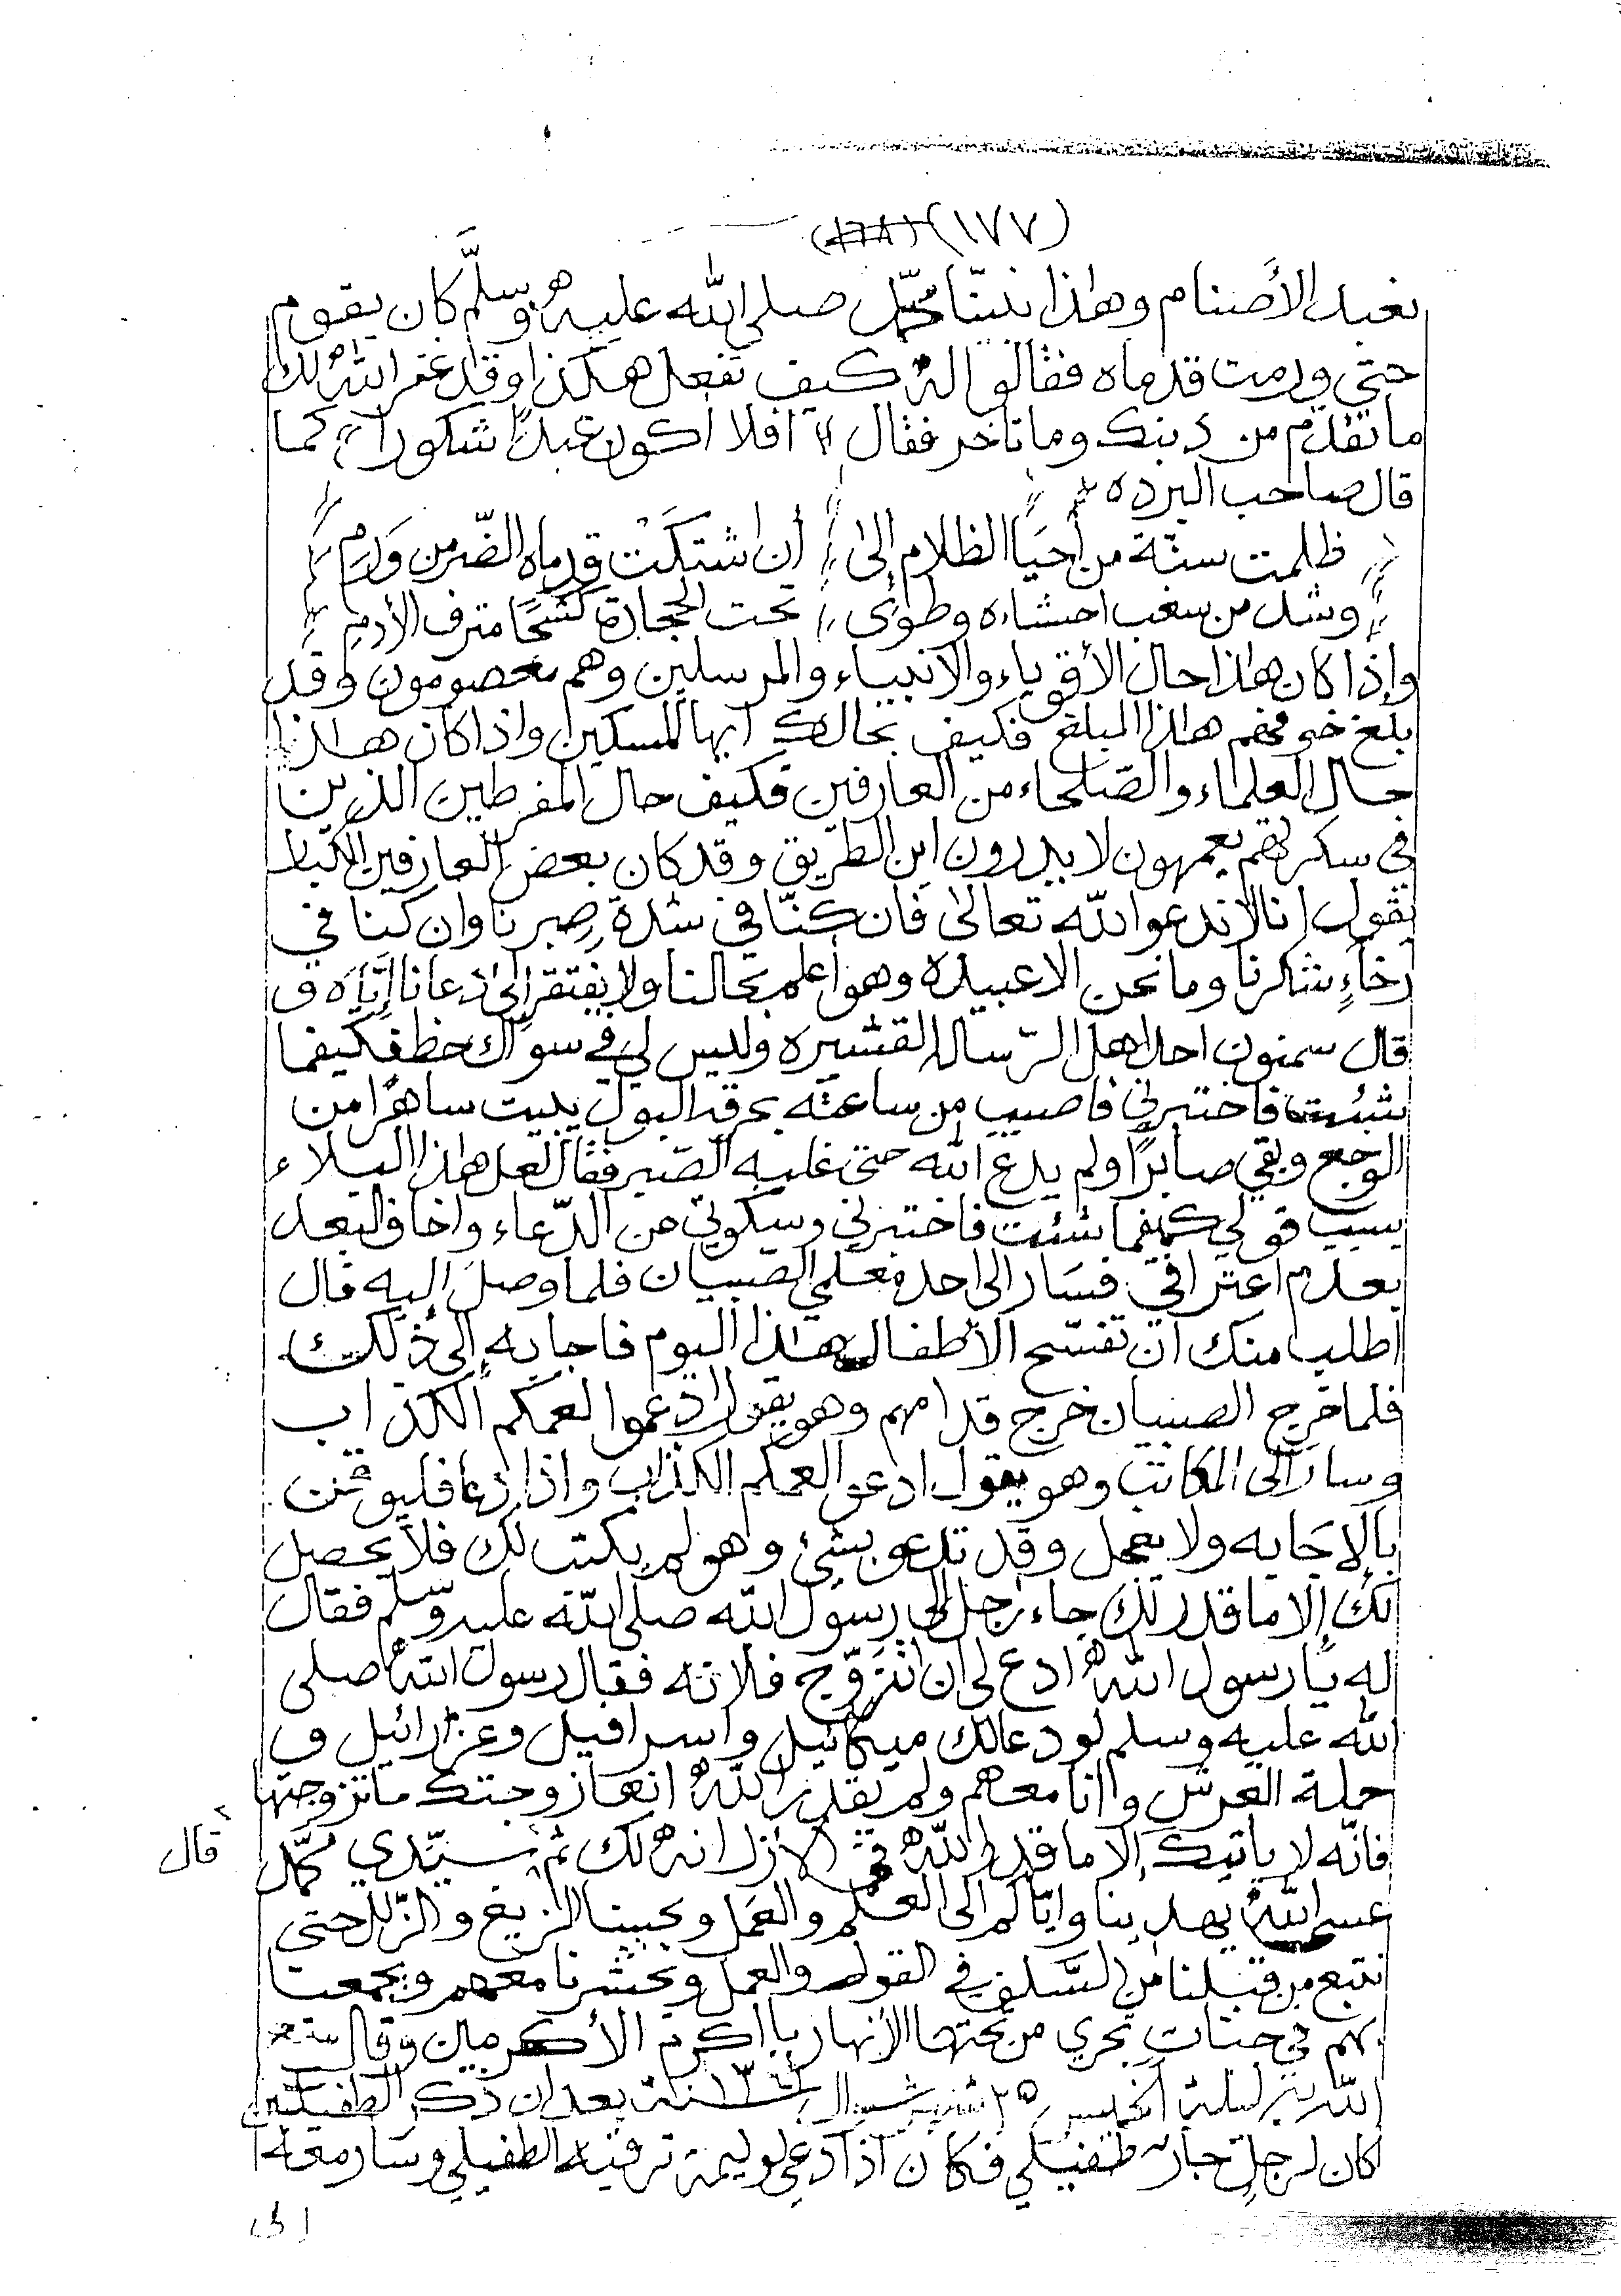 (١٧٧) (١٧٨)
نعبد الأصنام وهذا نبيّنا محمّد صلى الله عليه وسلّم كان يقوم
حتى ورمت قدماه فقالوا له كيف تفعل هكذا وقد غفر الله لك
ما تقدّم من ذنبك وما تأخر فقال (( افلا اكون عبدًا شكورا )) كما
قال صاحب البرده
ظلمت سنّة من أحيَا الظلام إلى أن اشتكَت قدماه الضّر من وَرَمِ
وشد من سغب احشاءه وطوَى تحت الحجارة كشحًا مترف الأدمِ
وإذا كان هذا حال الأقوياء والانبياء والمرسلين وهم معصومون وقد
بلغ خوفهم هذا المبلغ فكيف بحالك ايها المسكين واذا كان هذا
حال العلماء والصّلحاء من العارفين فكيف حال المفرطين الذين
في سكرتهم يعمهون لا يدرون اين الطّريق وقد كان بعض العارفين الكبار
يقول إنا لا ندعوا الله تعالى فان كنّا في شدةٍ صبرنا وان كنا في
رخاءٍ شكرنا وما نحن الا عبيده وهو أعلم بحالنا ولا يفتقر إلى دعانا إيَّاه و
قال سمنون احد اهل الرّساله القشيره وليس لي في سواك حظ فكيفما
شئت فاختبرني فاصيب من ساعته بحرقة البول يبيت ساهرًا من
الوجع وبقي صابرًا ولم يدع الله حتى غلبه الصّبر فقال لعل هذا البلاء
بسبب قولي كيفما شئت فاختبرني وسكوتي عن الدّعاء واخاف البعد
بعدم اعترافي فسَار الى احد معلمي الصبيان فلما وصل إليه قال
اطلب منك ان تفسّح الأطفال هذا اليوم فاجابه إلى ذلك
فلما خرج الصبيان خرج قدامهم وهو يقول ادعوا لعمكم الكذاب
وسار الى المكاتب وهو يقول ادعو لعمكم الكذاب واذا دعا فليوقن
بالإجَابه ولا يعجل وقد تدعو بشئ وهو لم يكتب لك فلا يحصل
لك إلا ما قدر لك جاء رجل إلى رسول الله صلى الله عليه وسّلم فقال
له يا رسول الله ادع لي ان اتزوّج فلانه فقال رسول الله صلى
الله عليه وسلم لو دعا لك ميكائيل واسرافيل وعزرائيل و
حملة العرش وانا معهم ولم يقدر الله انها زوجتك ما تزوجتها
فانّه لا ياتيك إلا ما قدر الله في الأزل انه لك ثم قال سيّدي محمّد
عسى الله يهدينا وايّاكم الى العلم والعَمل ويجنبنا الزيغ والزّلل حتى
نتبع من قبلنا من السّلف في القول والعمل ويحشرنا معهم ويجمعنا
بهم في جنات تجري من تحتها الأنهار يا اكرم الأكرمين وقال
ليلة الخميس ٢٥ شهر شوال بعد ان ذكر الطفيليين
كان لرجلٍ جار طفيلي فكان اذا دعي لوليمة ترقبه الطفيلي وسار معه
الى